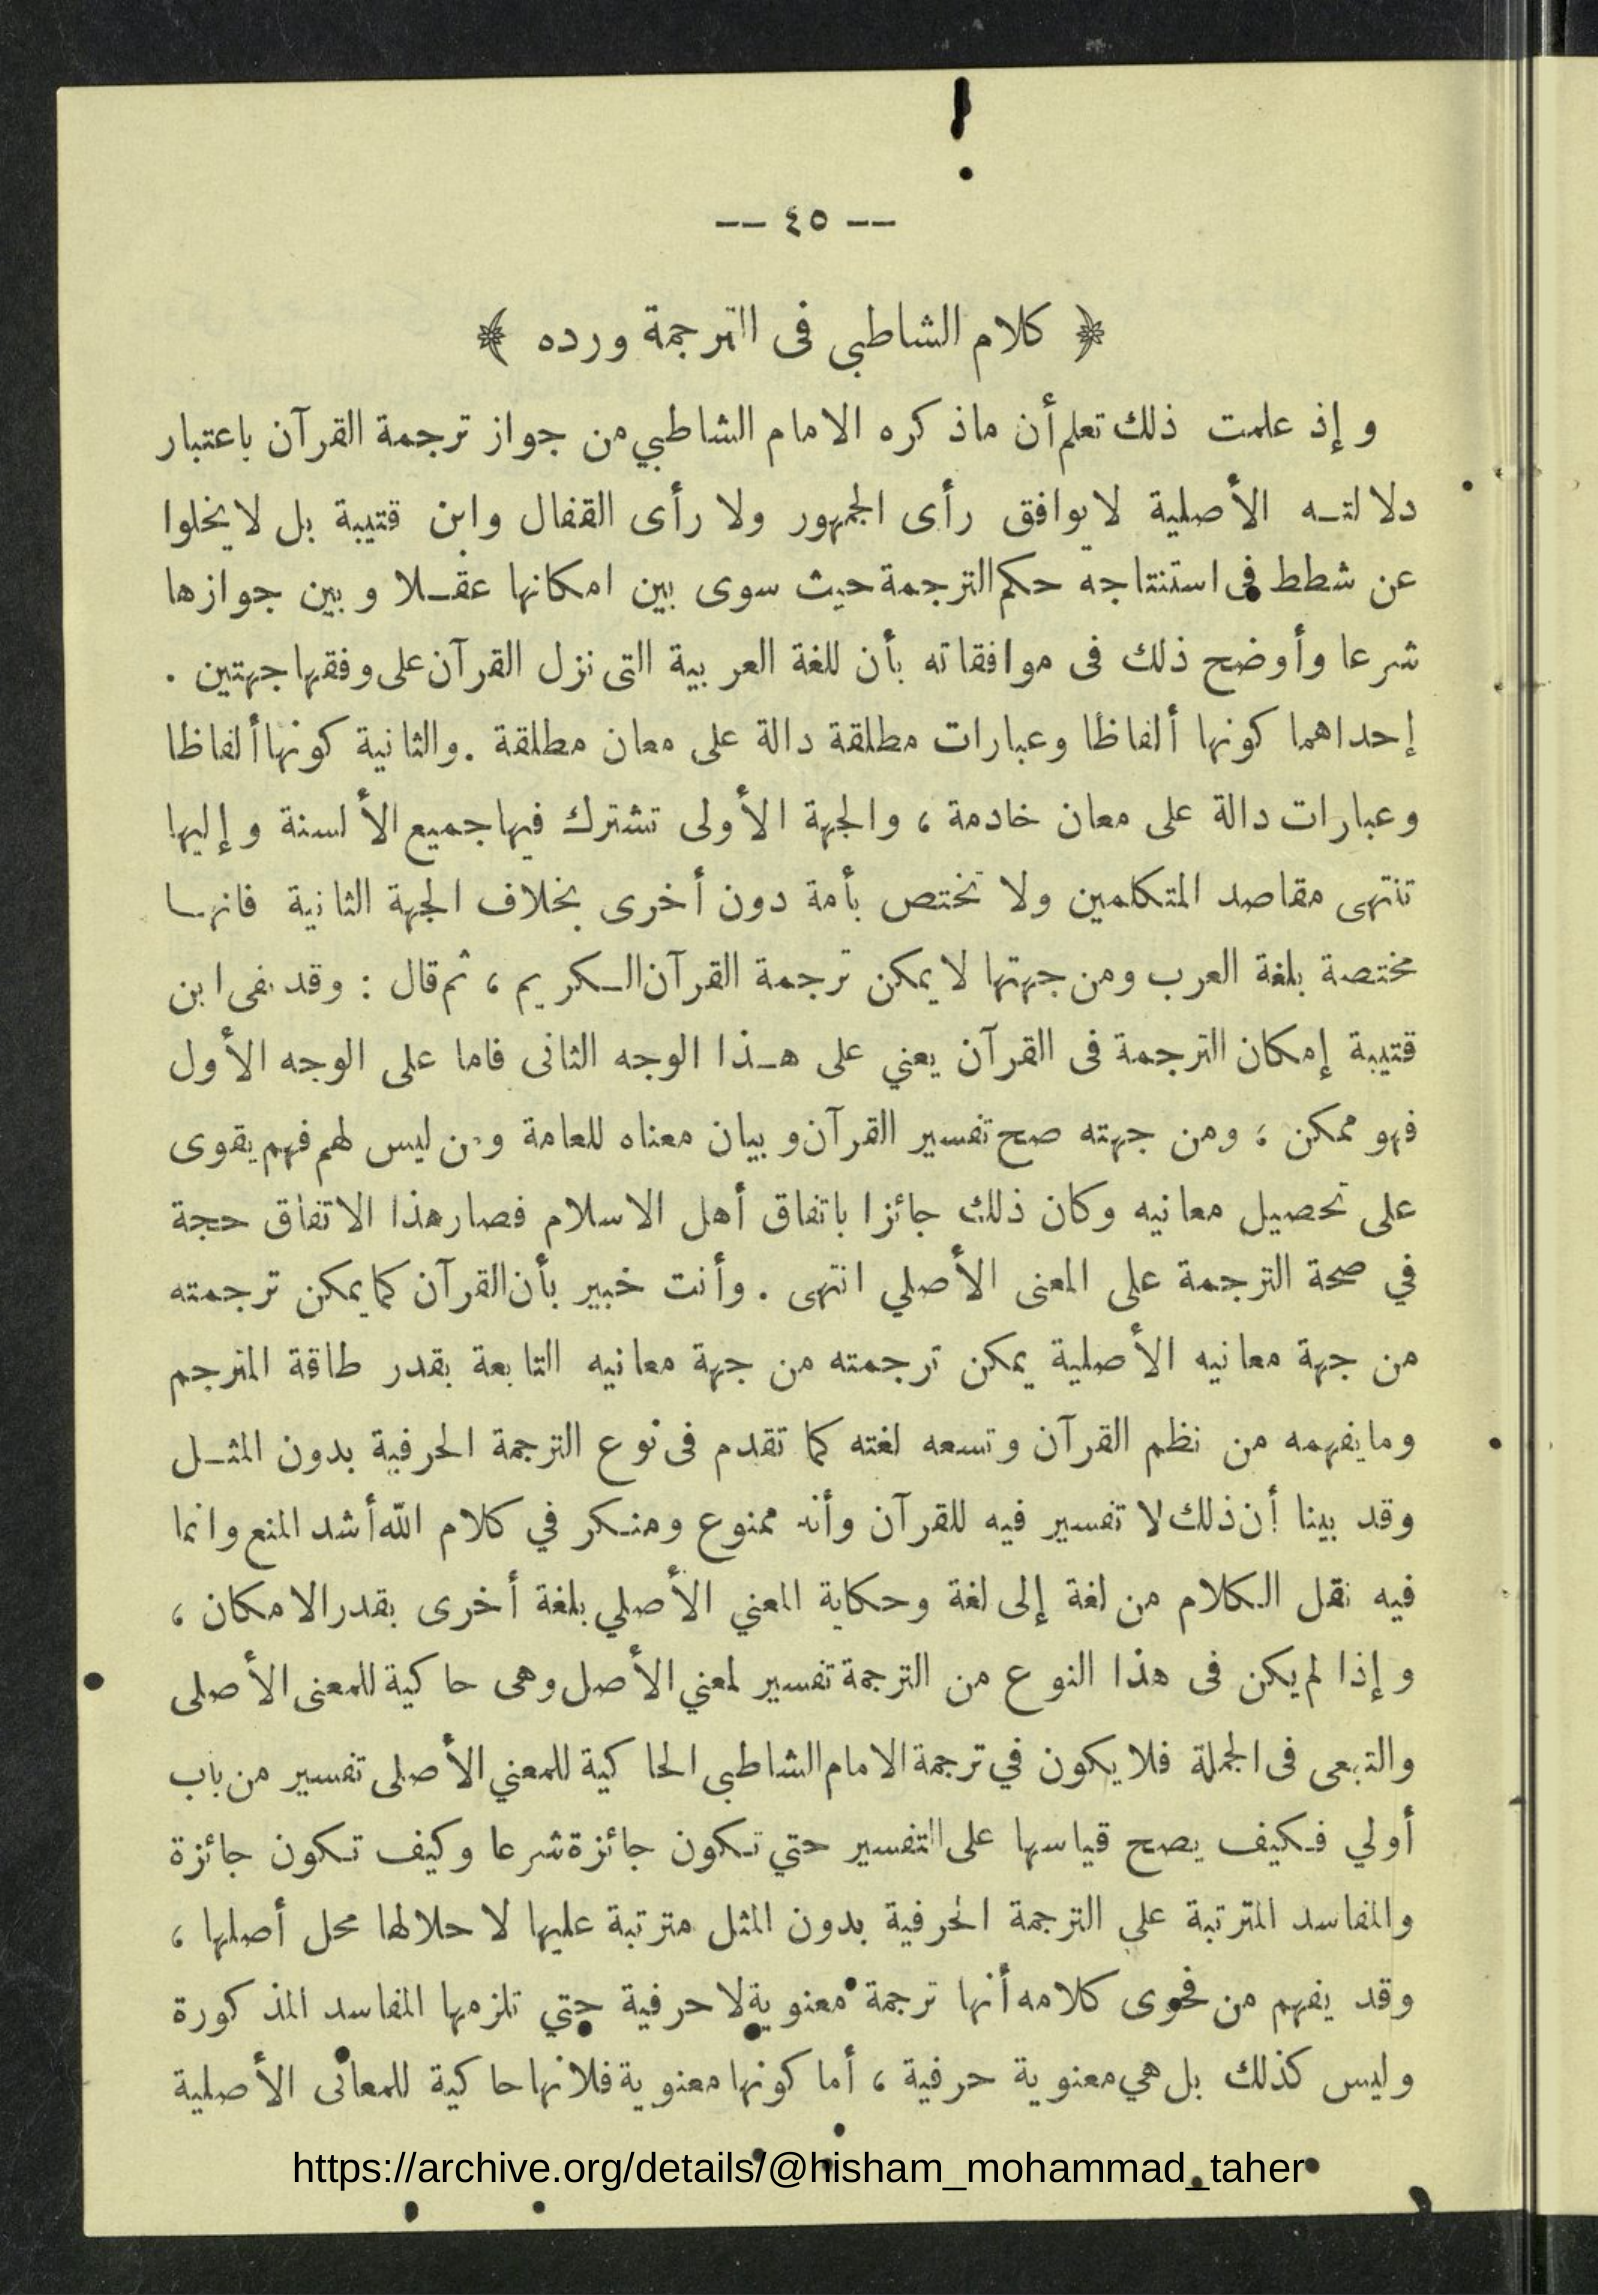 — ٤٥ —
﴿ كلام الشاطبي فى الترجمة ورده ﴾
وإذ علمت ذلك تعلم أن ماذكره الامام الشاطبي من جواز ترجمة القرآن باعتبار
دلالتـه الأصلية لا يوافق رأى الجمهور ولا رأى القفال وابن قتيبة بل لا يخلوا
عن شطط فى استنتاجه حكم الترجمة حيث سوى بين امكانها عقـلا وبين جوازها
شرعا وأوضح ذلك فى موافقاته بأن للغة العربية التى نزل القرآن على وفقها جهتين .
إحداهما كونها ألفاظا وعبارات مطلقة دالة على معان مطلقة . والثانية كونها ألفاظا
وعبارات دالة على معان خادمة ، والجهة الأولى تشترك فيها جميع الألسنة وإليها
تنتهى مقاصد المتكلمين ولا تختص بأمة دون أخرى بخلاف الجهة الثانية فانهـا
مختصة بلغة العرب ومن جهتها لا يمكن ترجمة القرآن الـكريم ، ثم قال : وقد نفى ابن
قتيبة إمكان الترجمة فى القرآن يعني على هـذا الوجه الثانى فاما على الوجه الأول
فهو ممكن ، ومن جهته صح تفسير القرآن وبيان معناه للعامة ومن ليس لهم فهم يقوى
على تحصيل معانيه وكان ذلك جائزا باتفاق أهل الاسلام فصار هذا الاتفاق حجة
في صحة الترجمة على المعنى الأصلي انتهى . وأنت خبير بأن القرآن كما يمكن ترجمته
من جهة معانيه الأصلية يمكن ترجمته من جهة معانيه التابعة بقدر طاقة المترجم
وما يفهمه من نظم القرآن وتسعه لغته كما تقدم فى نوع الترجمة الحرفية بدون المثـل
وقد بينا أن ذلك لا تفسير فيه للقرآن وأنه ممنوع ومنـكر في كلام الله أشد المنع وانما
فيه نقل الـكلام من لغة إلى لغة وحكاية المعني الأصلي بلغة أخرى بقدر الامكان ،
وإذا لم يكن فى هذا النوع من الترجمة تفسير لمعني الأصل وهى حاكية للمعنى الأصلى
والتبعى فى الجملة فلا يكون في ترجمة الامام الشاطبى الحاكية للمعني الأصلى تفسير من باب
أولي فـكيف يصح قياسها على التفسير حتي تـكون جائزة شرعا وكيف تـكون جائزة
والمفاسد المترتبة على الترجمة الحرفية بدون المثل مترتبة عليها لاحلالها محل أصلها ،
وقد يفهم من فحوى كلامه أنها ترجمة معنوية لا حرفية حتي تلزمها المفاسد المذكورة
وليس كذلك بل هي معنوية حرفية ، أما كونها معنوية فلانها حاكية للمعانى الأصلية
https://archive.org/details/@hisham_mohammad_taher